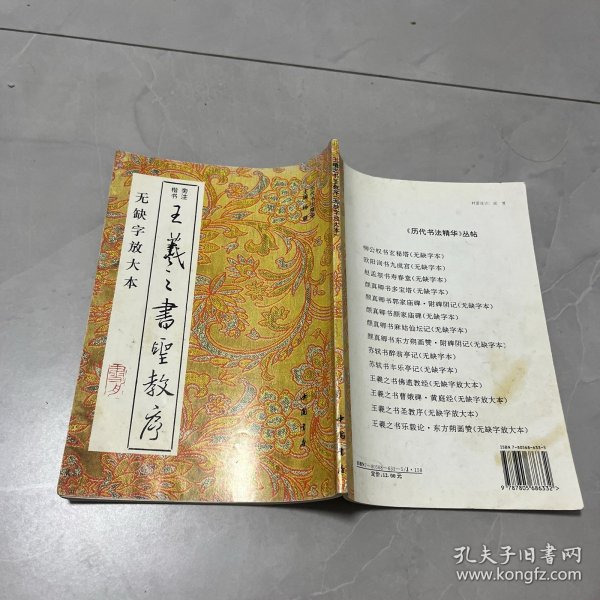 楷书
旁注
王羲之書聖教序
无缺字放大本
中国书店
中国书店
《历代书法精华》丛帖
柳公权书玄秘塔(无缺字本)
欧阳询书九成宫(无缺字本)
赵孟頫书寿春堂(无缺字本)
颜真卿书多宝塔(无缺字本)
颜真卿书郭家庙碑·附碑阴记(无缺字本)
颜真卿书颜家庙碑(无缺字本)
颜真卿书麻姑仙坛记(无缺字本)
颜真卿书东方朔画赞·附碑阴记(无缺字本)
苏轼书醉翁亭记(无缺字本)
苏轼书丰乐亭记(无缺字本)
王羲之书佛遗教经(无缺字放大本)
王羲之书曹娥碑·黄庭经(无缺字放大本)
王羲之书圣教序(无缺字放大本)
王羲之书乐毅论·东方朔画赞(无缺字放大本)
ISBN 7-80568-633-5
ISBN7-80568-633-5/J·158
定价:12.00元
9 787805 686332
孔夫子旧书网
www.kongfz.com